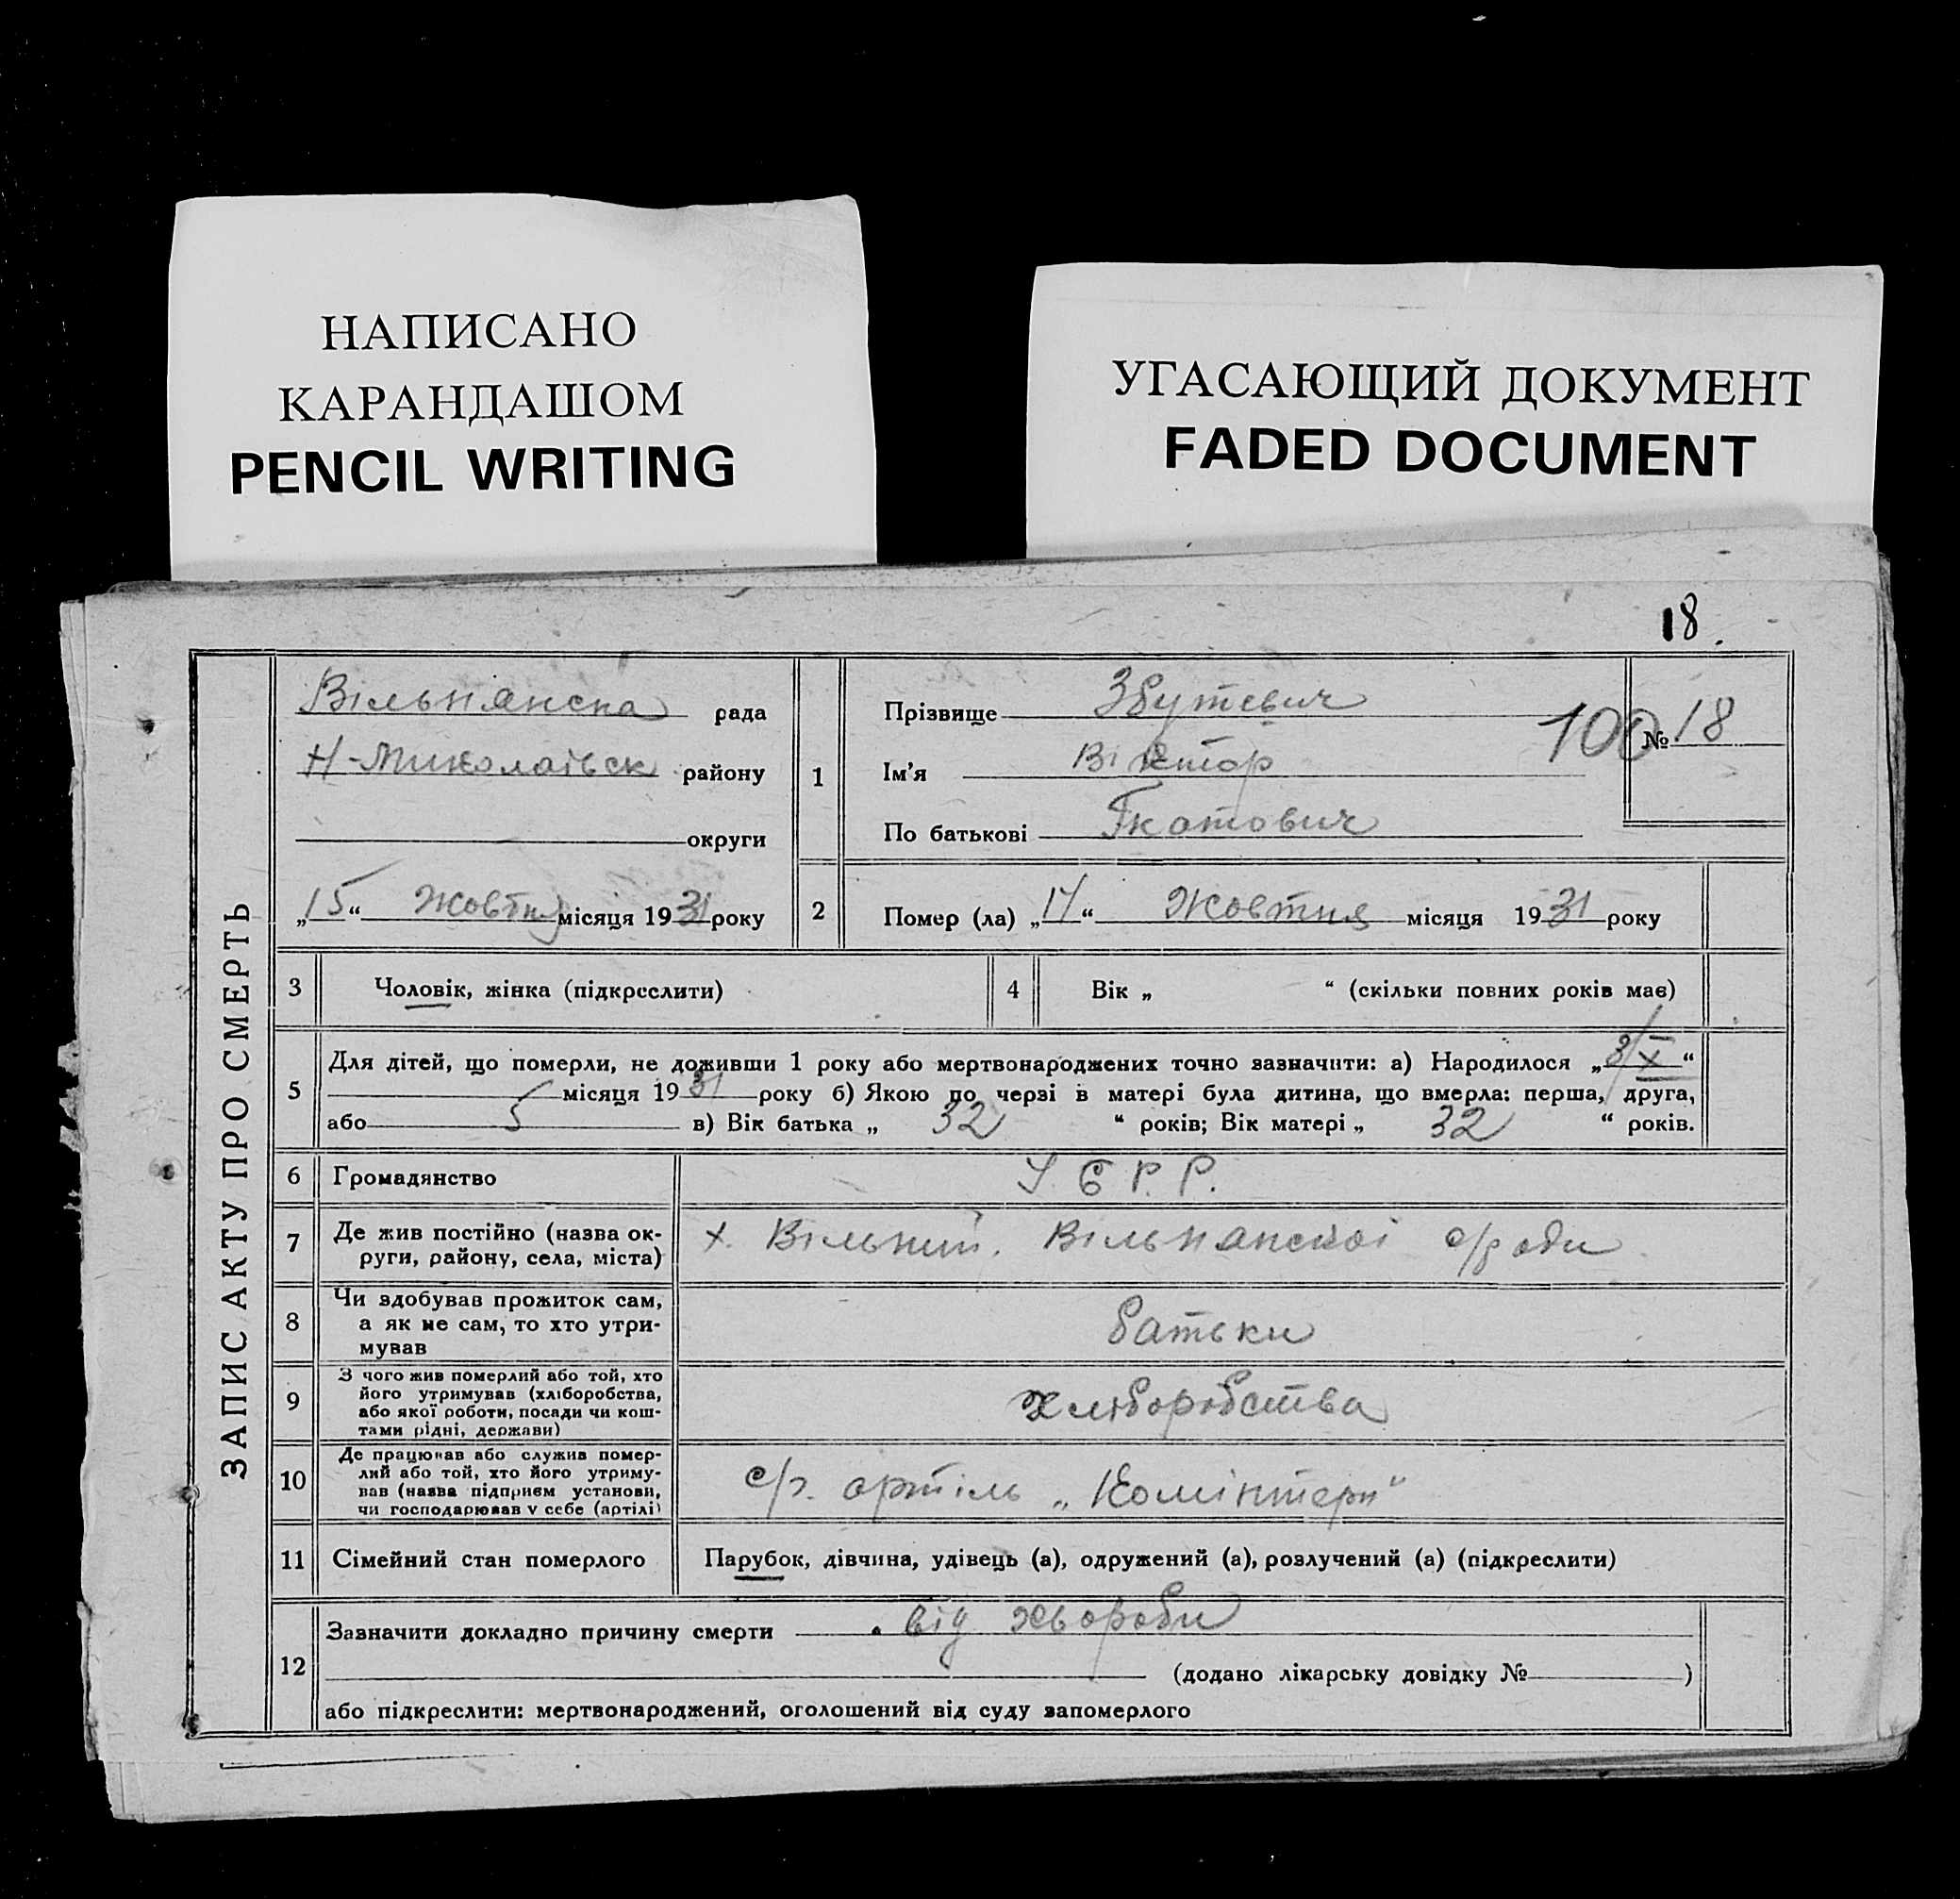 НАПИСАНО
КАРАНДАШОМ
PENCIL WRITING
УГАСАЮЩИЙ ДОКУМЕНТ
FADED DOCUMENT
18.
ЗАПИС АКТУ ПРО СМЕРТЬ
Вільнянська рада
Н-Миколаївськ району
округи
„15“ Жовтня місяця 1931 року
1
Прізвище Збутевич
Ім'я Віктор
По батькові
100
№ 18
2 Помер (ла) „14“ Жовтня місяця 1931 року
3 Чоловік, жінка (підкреслити)
4 Вік „ “ (скільки повних років має)
5 Для дітей, що померли, не доживши 1 року або мертвонароджених точно зазначити: а) Народилося „8/X“
місяця 1931 року б) Якою по черзі в матері була дитина, що вмерла: перша, друга,
або 5 в) Вік батька „ 32 “ років; Вік матері „ 32 “ років.
6 Громадянство У.С.Р.Р.
7 Де жив постійно (назва ок-
руги, району, села, міста)
х. Вільний. Вільнянської с/ради
8 Чи здобував прожиток сам,
а як не сам, то хто утри-
мував
батьки
9 З чого жив померлий або той, хто
його утримував (хліборобства,
або якої роботи, посади чи кош-
тами рідні, держави)
Хліборобства
10 Де працював або служив помер-
лий або той, хто його утриму-
вав (назва підприєм установи,
чи господарював у себе (артілі)
с/г. артіль „Комінтерн“
11 Сімейний стан померлого Парубок, дівчина, удівець (а), одружений (а), розлучений (а) (підкреслити)
12 Зазначити докладно причину смерти від хвороби
(додано лікарську довідку № )
або підкреслити: мертвонароджений, оголошений від суду запомерлого